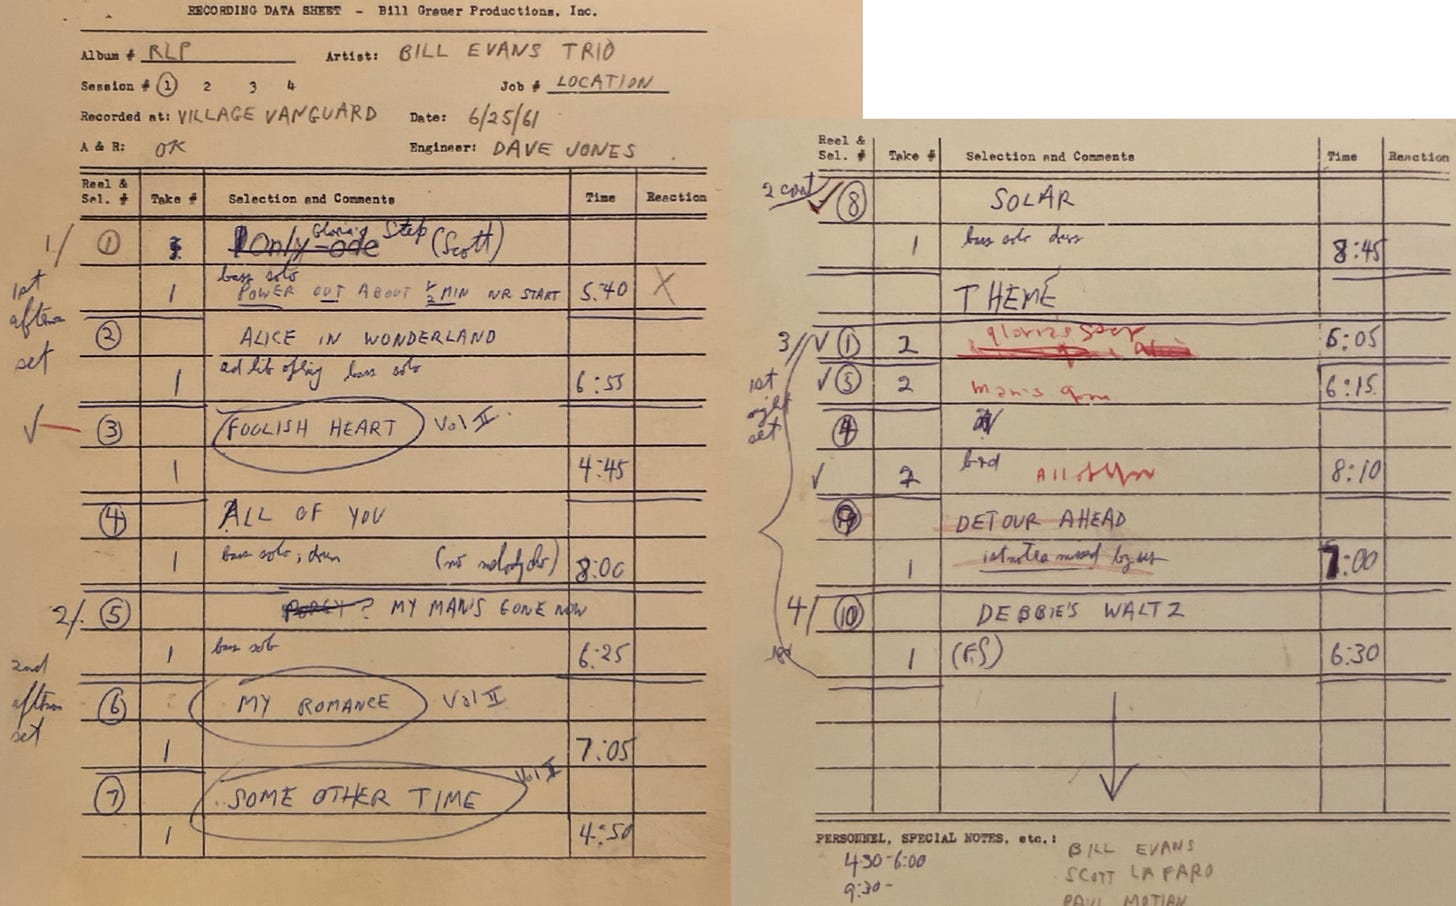 RECORDING DATA SHEET - Bill Grauer Productions, Inc.
Album # RLP Artist: BILL EVANS TRIO
Session # 1 2 3 4 Job # LOCATION
Recorded at: VILLAGE VANGUARD Date: 6/25/61
A & R: OK Engineer: DAVE JONES
Reel & Sel. # Take # Selection and Comments Time Reaction
1/ 1 Gloria's Step (Scott)
bass solo
1 POWER OUT ABOUT 1/2 MIN NR START 5:40 X
1st aftern set
2 ALICE IN WONDERLAND
1 ad lib bass solo 6:55
✓ 3 FOOLISH HEART Vol II
1 4:45
4 ALL OF YOU
1 bass solo; drum (no melody) 8:00
2/ 5 PORGY? MY MAN'S GONE NOW
1 bass solo 6:25
2nd aftern set
6 MY ROMANCE Vol II
1 7:05
7 SOME OTHER TIME Vol II
1 4:50
Reel & Sel. # Take # Selection and Comments Time Reaction
2 cont ✓ 8 SOLAR
1 bass solo drum 8:45
THEME
3/ ✓ 1 2 gloria's step 6:05
1st night set
✓ 5 2 man's gone 6:15
4
✓ 2 All of You 8:10
9 DETOUR AHEAD
1 1st notes missed by us 7:00
4/ 10 DEBBIE'S WALTZ
1 (FS) 6:30
PERSONNEL, SPECIAL NOTES, etc.:
4:30-6:00
9:30-
BILL EVANS
SCOTT LA FARO
PAUL MOTIAN